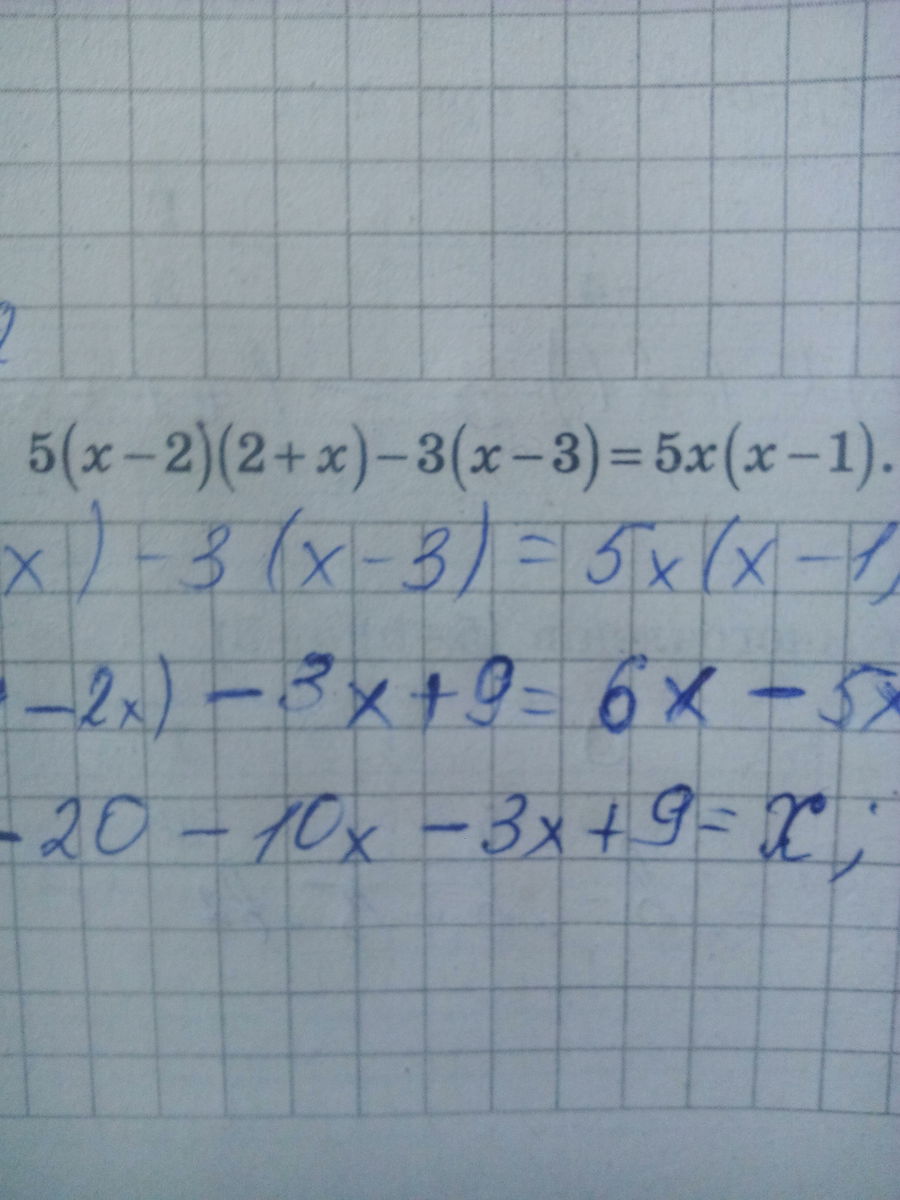 5(x−2)(2+x)−3(x−3)=5x(x−1).
x) - 3 (x - 3) = 5x(x - 1)
- 2x) - 3x + 9 = 6x - 5x
- 20 - 10x - 3x + 9 = x;